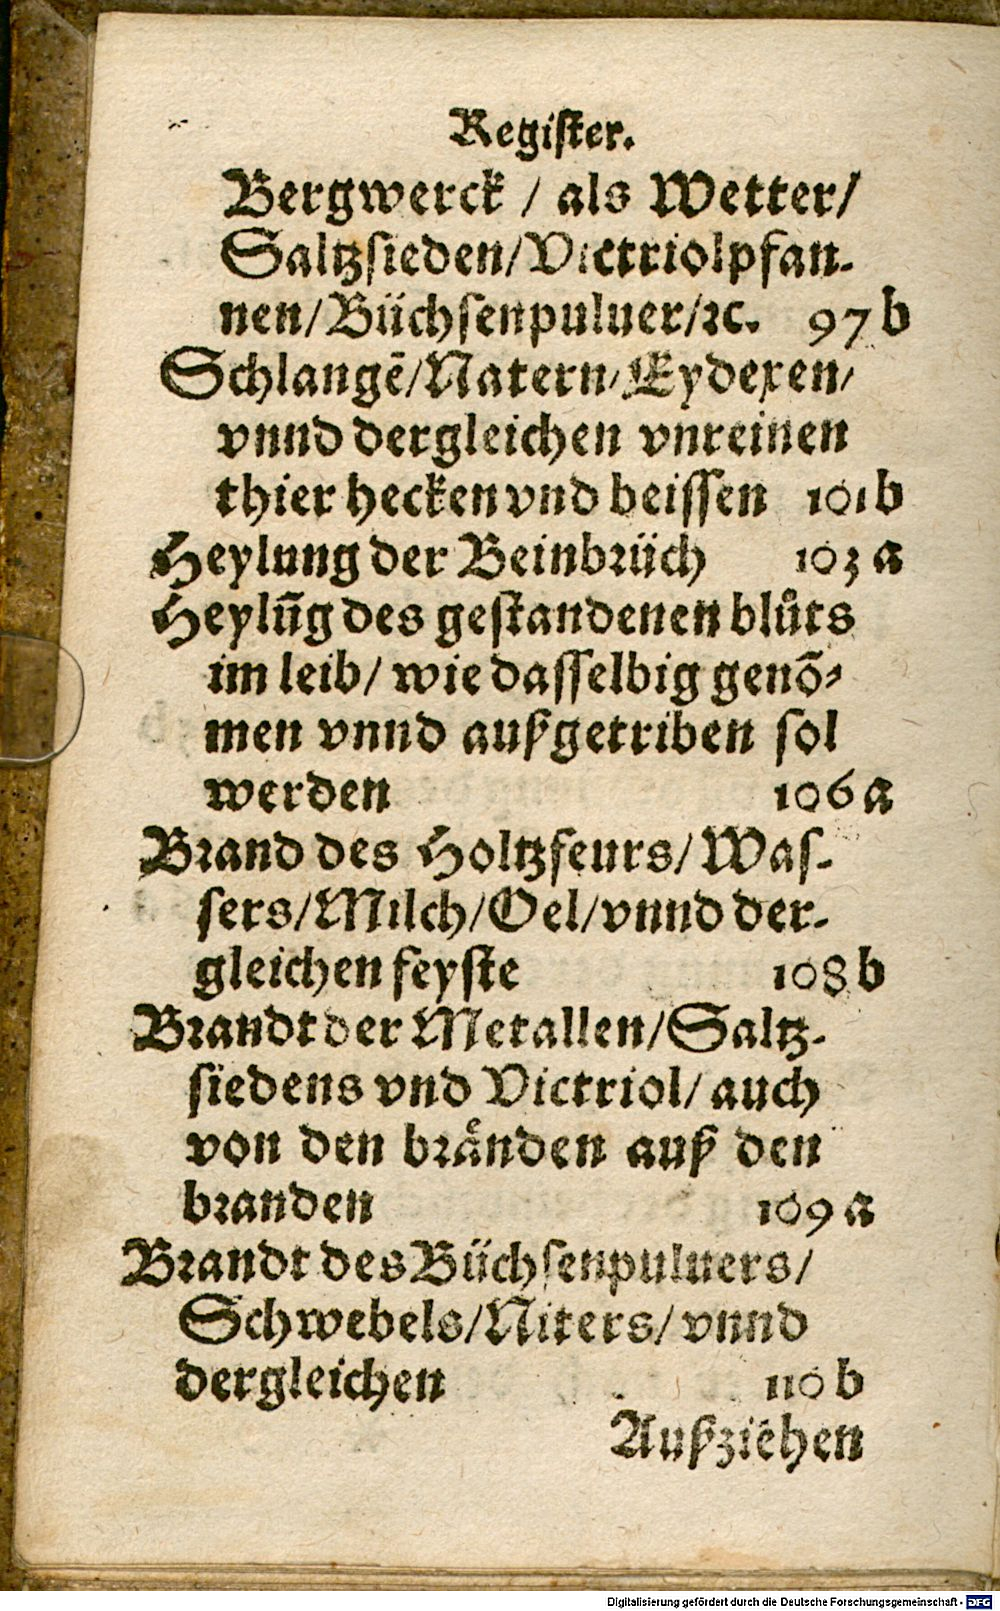 Regiſter.
Bergwerck / als Wetter/
Saltzſieden/Victriolpfan-
nen/Büchſenpuluer/ꝛc. 97 b
Schlangē/Natern/Eydexen/
vnnd dergleichen vnreinen
thier hecken vnd beiſſen 101 b
Heylung der Beinbꝛüch 103 a
Heylūg des geſtandenen blůts
im leib/ wie daſſelbig genō-
men vnnd außgetriben sol
werden 106 a
Bꝛand des Holtzfeurs/Waſ-
ſers/Milch/Oel/vnnd der-
gleichen feyſte 108 b
Bꝛandt der Metallen/Saltz-
ſiedens vnd Victriol/ auch
von den bꝛaͤnden auß den
bꝛanden 109 a
Bꝛandt des Büchſenpuluers/
Schwebels/Niters/ vnnd
dergleichen 110 b
Außziehen
Digitalisierung gefördert durch die Deutsche Forschungsgemeinschaft - DFG